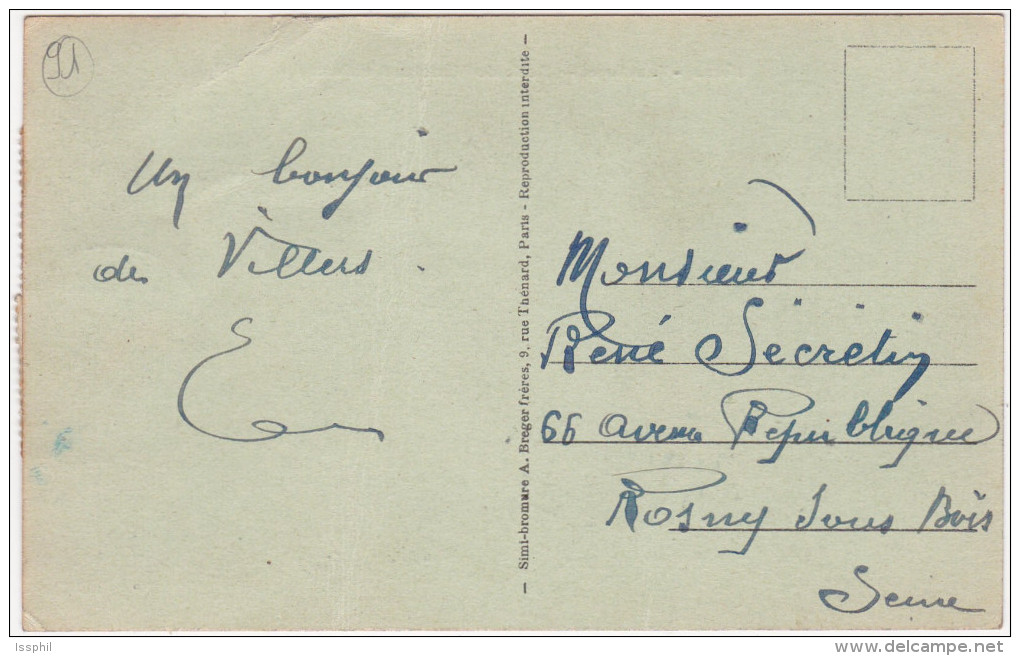 91
Un bonjour
des Villers.
— Simi-bromure A. Breger frères, 9, rue Thénard, Paris - Reproduction interdite —
Monsieur
René Sécrétin
66 avenue République
Rosny sous Bois
Seine
Issphil
www.delcampe.net